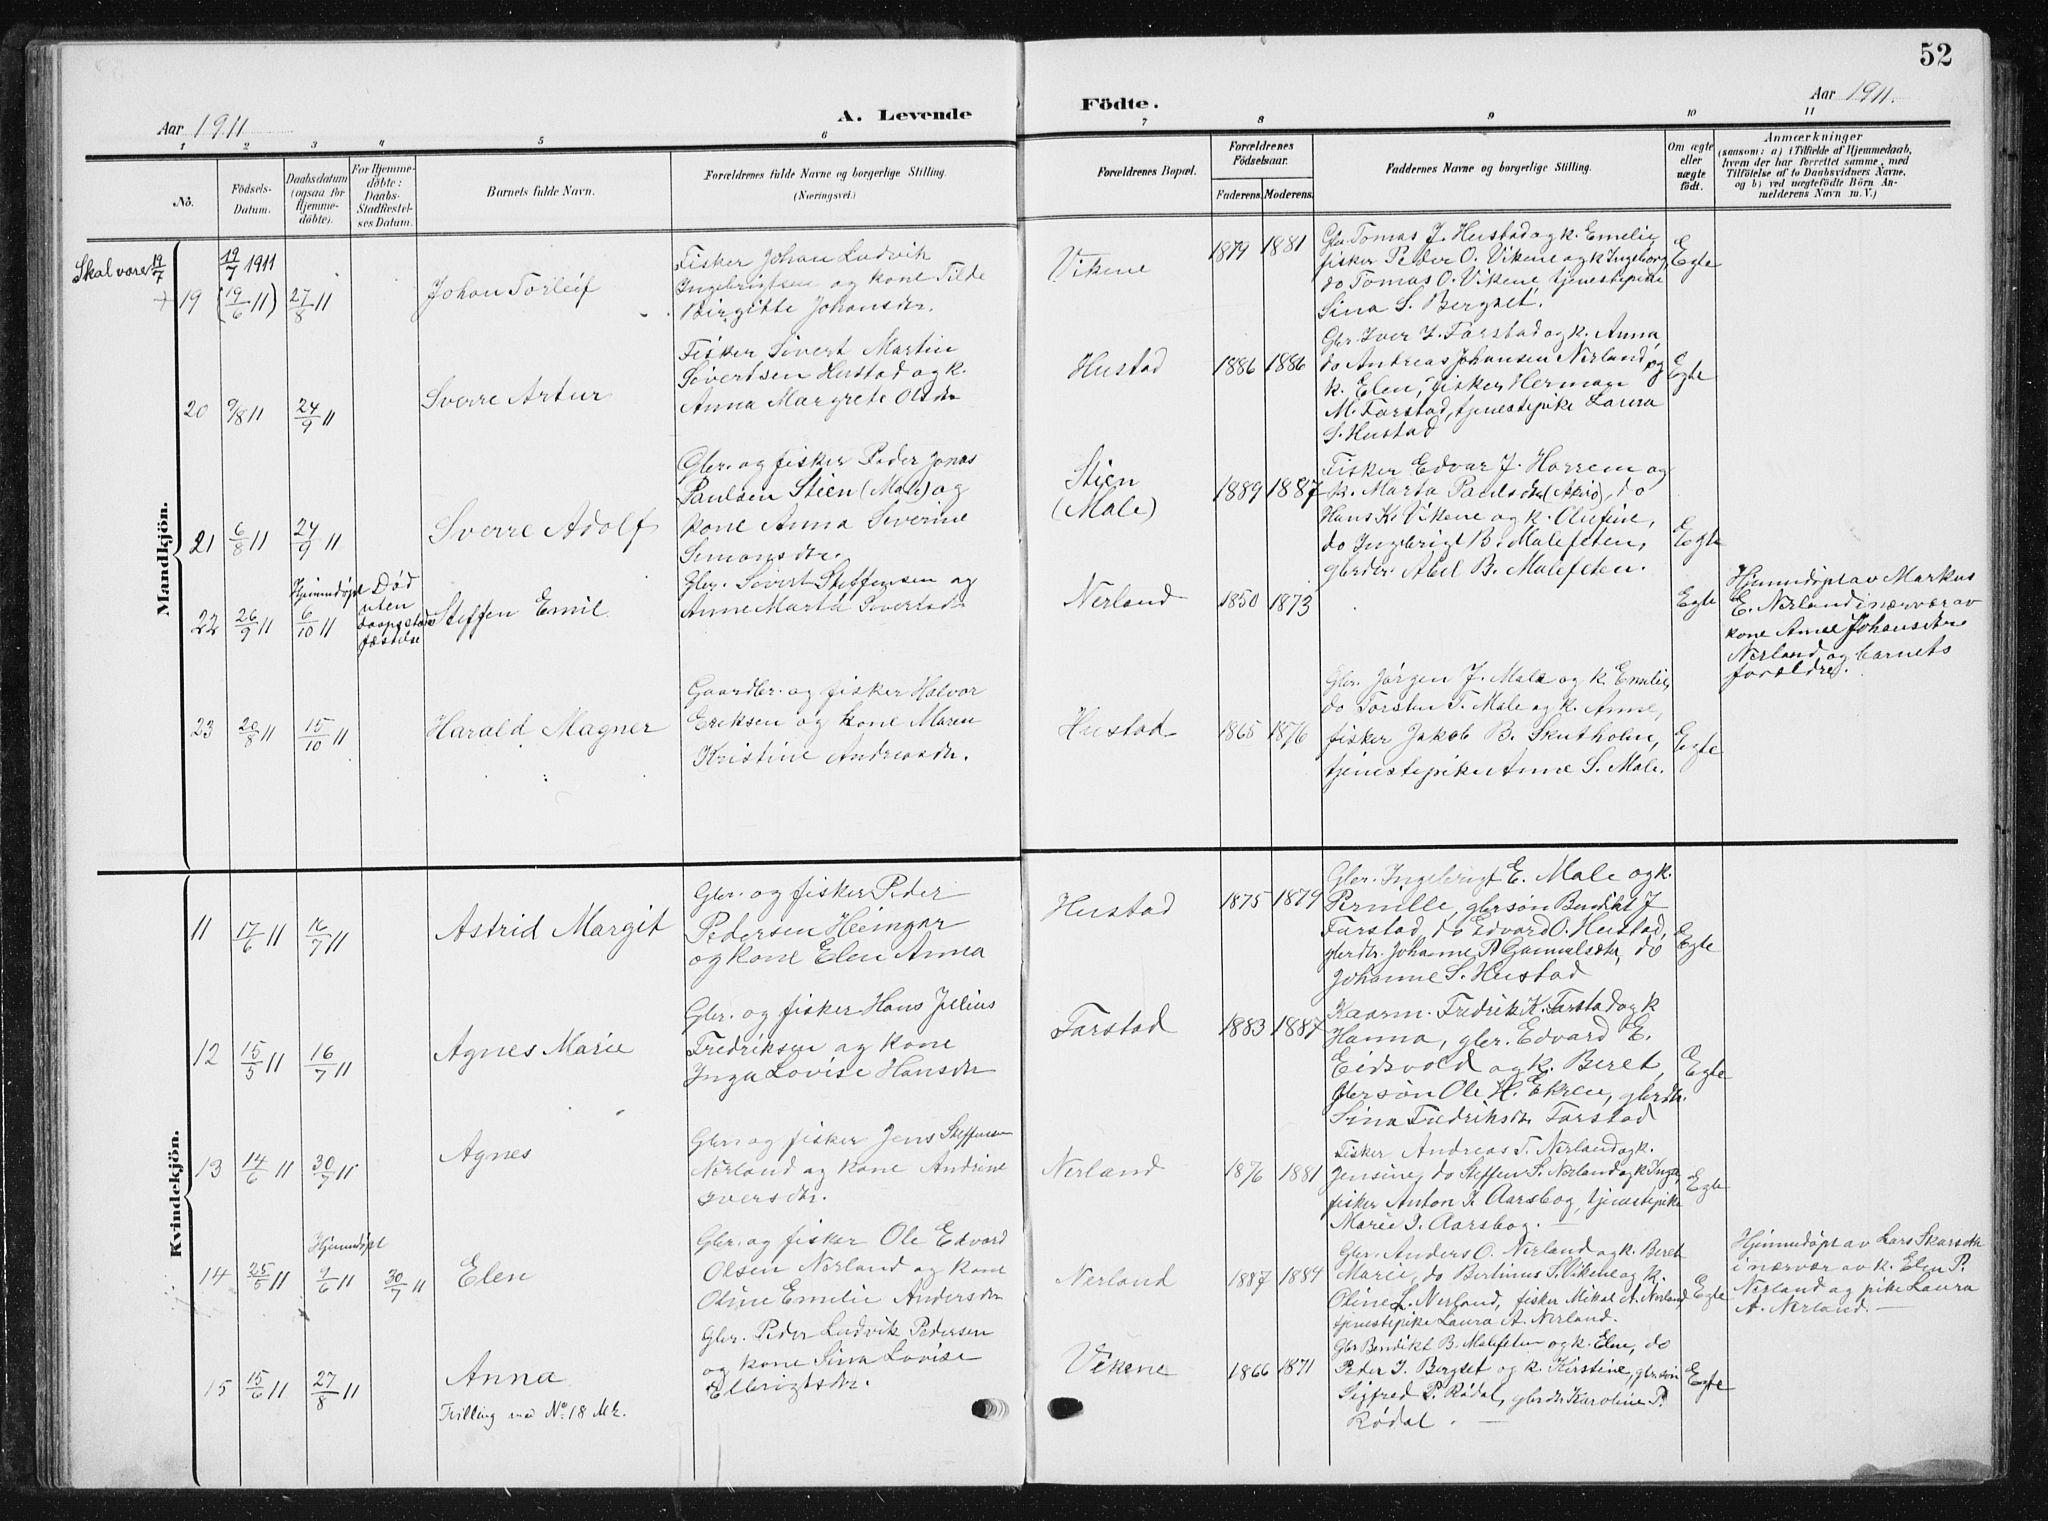 52
Aar 1911
A. Levende
Födte.
Aar 1911.
1 2 3 4 5 6 7 8 9 10 11
No.
Födsels-
Datum.
Daabsdatum
(ogsaa for
Hjemme-
döbte).
For Hjemme-
döbte:
Daabs-
Stadfæstel-
ses Datum.
Barnets fulde Navn.
Forældrenes fulde Navne og borgerlige Stilling.
(Næringsvei.)
Forældrenes Bopæl.
Forældrenes
Födselsaar.
Faderens.
Moderens.
Faddernes Navne og borgerlige Stilling.
Om ægte
eller
uægte
födt.
Anmærkninger
(saasom: a) i Tilfælde af Hjemmedaab,
hvem der har forrettet samme, med
Tilföielse af to Daabsvidners Navne,
og b) ved uægtefödte Börn An-
melderens Navn m. V.)
Mandkjön.
Skal være 19/7
19/7 1911
19 (19/6 11) 27/8 11
Johan Torleif
Fisker Johan Ludvik
Ingebrigtsen og kone Tilde
Birgitte Johansdr.
Vikene
1879 1881
Gbr. Tomas J. Hustad og k. Emelie
fisker Peder O. Vikene og k Ingeborg,
do Tomas O. Vikene, tjenestepike
Sina S. Bergset.
Egte
20 9/8 11 24/9 11
Sverre Artur
Fisker Sivert Martin
Sivertsen Hustad og k.
Anna Margrete Olsdr
Hustad
1886 1886
Gbr. Iver J. Farstad og k. Anna
do Andreas Johansen Nerland og
k. Elen, fisker Herman
M. Farstad, tjenestepike Laura
S. Hustad
Egte
21 6/8 11 24/9 11
Sverre Adolf
Gbr. og fisker Peder Jonas
Paulsen Stien (Male) og
kone Anna Severine
Simonsdr.
Stien
(Male)
1889 1887
Fisker Edvar J. Horrem og
k. Marta Paulsdr, do
Hans K. Vikene og k. Olufine,
do Ingebrigt B. Malefeten,
gbrdr. Abel B. Malefeten.
Egte
22 26/9 11
Hjemmedøpt
6/10 11
Død
uten
daapsstad
fæstelse
Steffen Emil
Gbr. Sivert Steffensen og
Anne Marta Sivertsdr
Nerland
1850 1873
Egte
Hjemmedøpt av Markus
E. Nerland i nærvær av
kone Anne Johansdr
Nerland og barnets
forældre.
23 20/8 11 15/10 11
Harald Magner
Gaardbr. og fisker Halvor
Eriksen og kone Maren
Kristine Andreasdr.
Hustad
1865 1876
Gbr. Jørgen J. Male og k. Emilie,
do Torsten T. Male og k. Anne,
fisker Jakob B. Skutholm,
tjenestepike Anne S. Male.
Egte
Kvindekjön.
11 17/6 11 16/7 11
Astrid Margit
Gbr. og fisker Peder
Pedersen Heingar
og kone Elen Anna
Hustad
1875 1879
Gbr. Ingebrigt E. Male og k.
Pernille, gbrsøn Bendikt J
Farstad, do Edvard O. Hustad,
gbrdr. Johanne P. Gammelsætr, do
Johanne S. Hustad
Egte
12 15/5 11 16/7 11
Agnes Marie
Gbr. og fisker Hans Julius
Fredriksen og kone
Inga Lovise Hansdr
Farstad
1883 1887
Kaarm. Fredrik K. Farstad og k
Hanna, gbr. Edvard E.
Eidsvold og k. Beret,
gbrsøn Ole H. Ekren, gbrdr.
Sina Fredriksdr Farstad
Egte
13 14/6 11 30/7 11
Agnes
Gbr. og fisker Jens Steffensen
Nerland og kone Andrine
Iversdr.
Nerland
1876 1881
Fisker Andreas T. Nerland og k.
Jensine, do Steffen S. Nerland og k. Inga,
fisker Anton I. Aarsbog, tjenestepike
Marie I. Aarsbog.
Egte
14 25/5 11
Hjemmedøpt
9/6 11 30/7 11
Elen
Gbr. og fisker Ole Edvard
Olsen Nerland og kone
Oline Emelie Andersdr
Nerland
1887 1884
Gbr. Anders O. Nerland og k. Beret
Marie, do Bertinus S. Vikene og k.
Oline L. Nerland, fisker Mikal A. Nerland,
tjenestepike Laura A. Nerland.
Egte
Hjemmedøpt av Lars Skarseth
i nærvær av k. Elen P.
Nerland og pike Laura
A. Nerland.
15 15/6 11 27/8 11
Anna
Tvilling med No. 18 Mk.
Gbr. Peder Ludvik Pedersen
og kone Sina Lovise
Elbrigtsdr.
Vikene
1866 1871
Gbr Bendikt B. Malefeten og k. Elen, do
Peter I. Bergset og k. Kirstine, gbrsøn
Sigfred P. Rødal, gbrdr Karoline P.
Rødal.
Egte